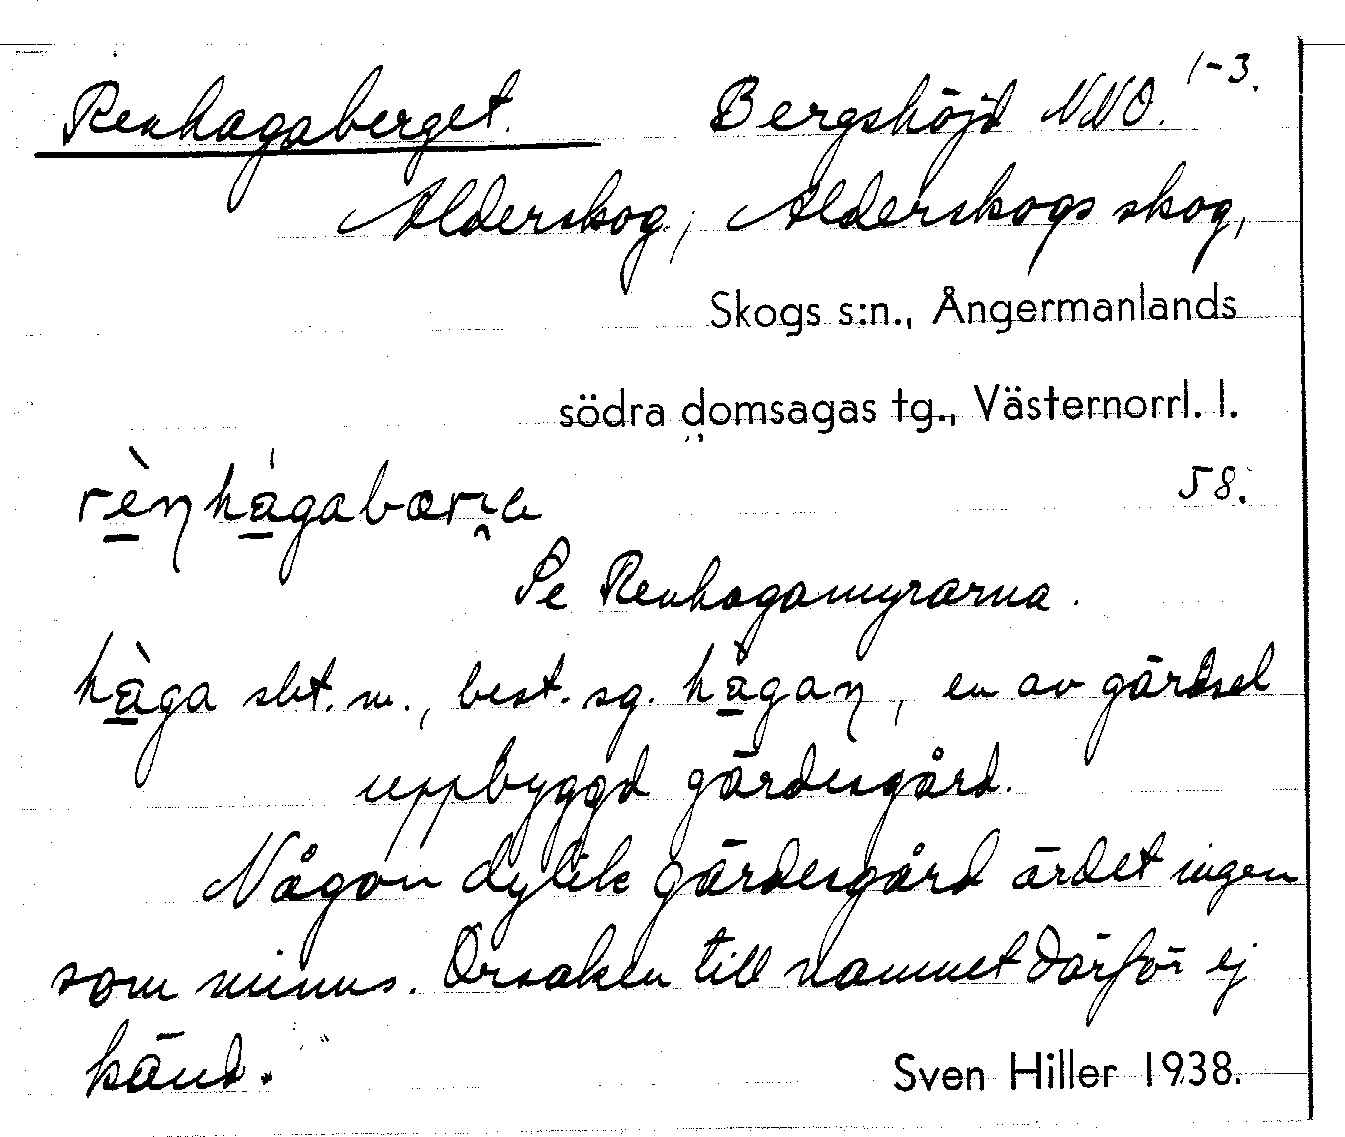 Renhagaberget. Bergshöjd NNO. 1-3.
Alderskog, Alderskogs skog,
Skogs s:n., Ångermanlands
södra domsagas tg., Västernorrl. l.
58.
Se Renhagamyrarna.
hàga sbt. m., best. sg. hàgaŋ, en av gärdsel
uppbyggd gärdesgård.
Någon dylik gärdesgård är det ingen
som minns. Orsaken till namnet därför ej
känd.
Sven Hiller 1938.